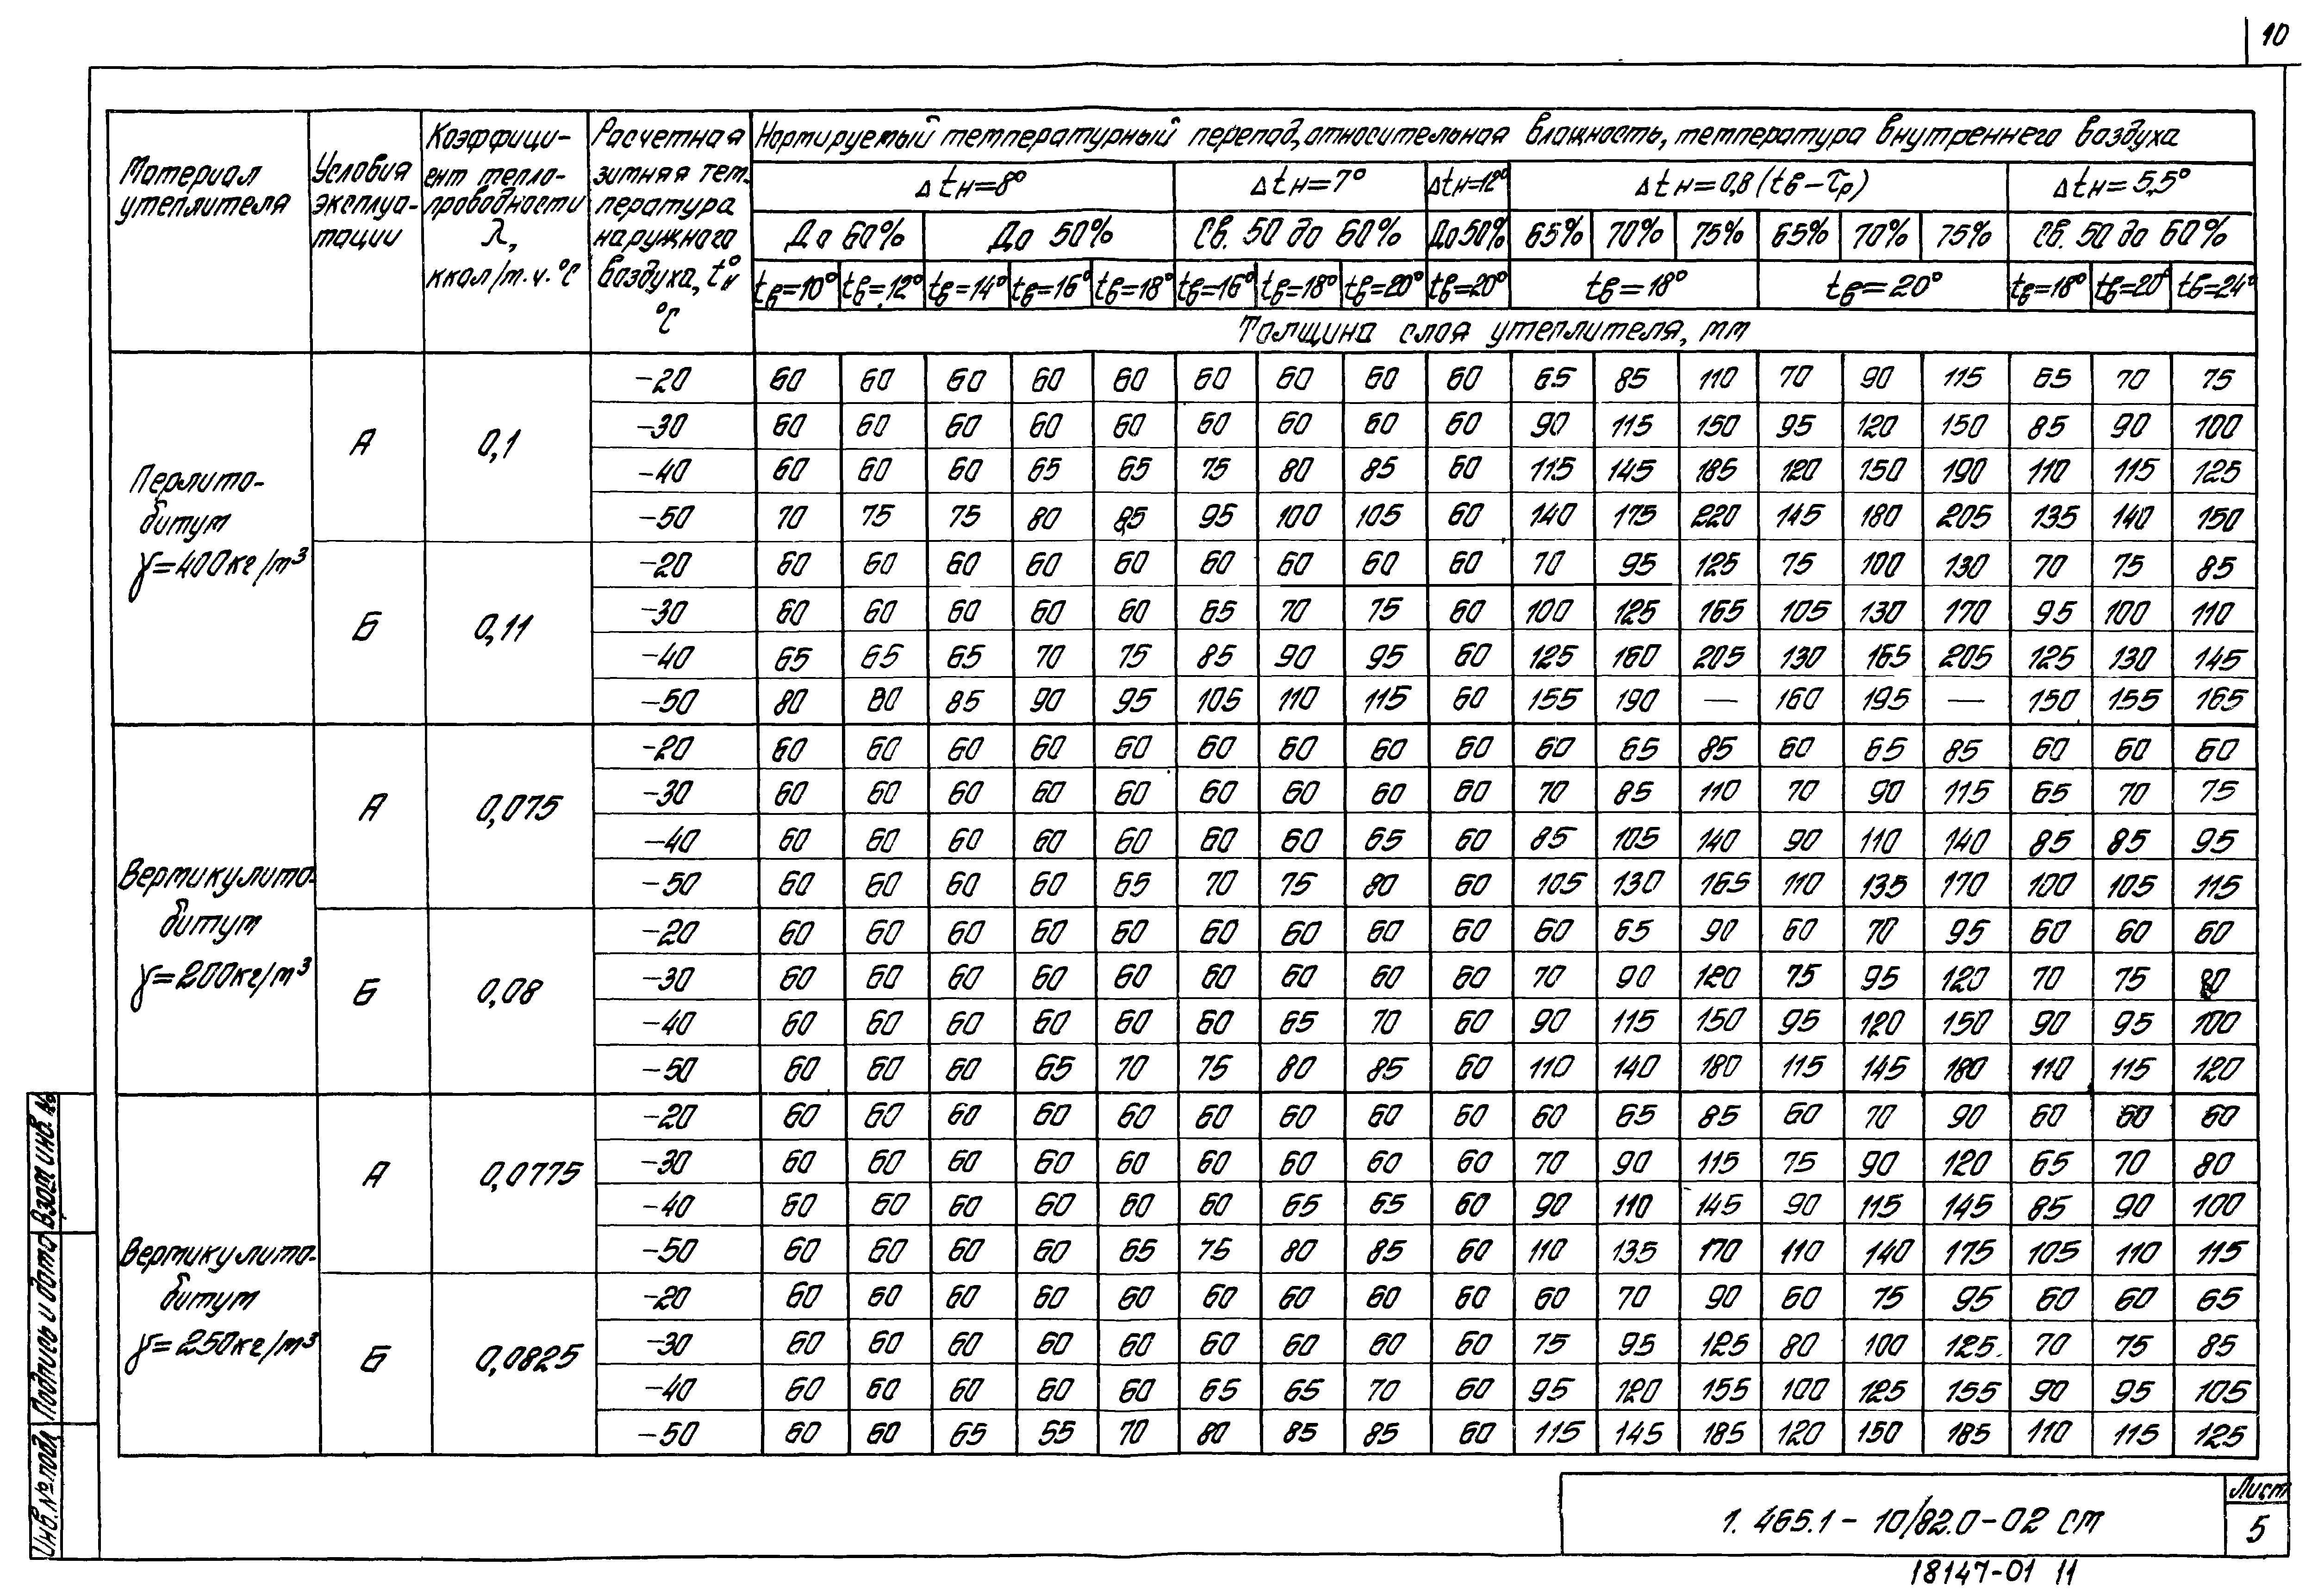 10
Материал утеплителя
Условия эксплуатации
Коэффици-ент тепло-проводности λ, ккал/м.ч.°С
Расчетная зимняя тем-пература наружного воздуха, t°н °С
Нормируемый температурный перепад, относительная влажность, температура внутреннего воздуха
Δtн=8° Δtн=7° Δtн=12° Δtн=0,8(tв-τр) Δtн=5,5°
До 60% До 50% Св. 50 до 60% До 50% 65% 70% 75% 65% 70% 75% Св. 50 до 60%
tв=10° tв=12° tв=14° tв=16° tв=18° tв=16° tв=18° tв=20° tв=20° tв=18° tв=20° tв=18° tв=20° tв=24°
Толщина слоя утеплителя, мм
Перлито-
битум
γ=400кг/м³
А 0,1
-20 60 60 60 60 60 60 60 60 60 65 85 110 70 90 115 65 70 75
-30 60 60 60 60 60 60 60 60 60 90 115 150 95 120 150 85 90 100
-40 60 60 60 65 65 75 80 85 60 115 145 185 120 150 190 110 115 125
-50 70 75 75 80 85 95 100 105 60 140 175 220 145 180 205 135 140 150
Б 0,11
-20 60 60 60 60 60 60 60 60 60 70 95 125 75 100 130 70 75 85
-30 60 60 60 60 60 65 70 75 60 100 125 165 105 130 170 95 100 110
-40 65 65 65 70 75 85 90 95 60 125 160 205 130 165 205 125 130 145
-50 80 80 85 90 95 105 110 115 60 155 190 — 160 195 — 150 155 165
Вермикулито-
битум
γ=200кг/м³
А 0,075
-20 60 60 60 60 60 60 60 60 60 60 65 85 60 65 85 60 60 60
-30 60 60 60 60 60 60 60 60 60 70 85 110 70 90 115 65 70 75
-40 60 60 60 60 60 60 60 65 60 85 105 140 90 110 140 85 85 95
-50 60 60 60 60 65 70 75 80 60 105 130 165 110 135 170 100 105 115
Б 0,08
-20 60 60 60 60 60 60 60 60 60 60 65 90 60 70 95 60 60 60
-30 60 60 60 60 60 60 60 60 60 70 90 120 75 95 120 70 75 80
-40 60 60 60 60 60 60 65 70 60 90 115 150 95 120 150 90 95 100
-50 60 60 60 65 70 75 80 85 60 110 140 180 115 145 180 110 115 120
Вермикулито-
битум
γ=250кг/м³
А 0,0775
-20 60 60 60 60 60 60 60 60 60 60 65 85 60 70 90 60 60 60
-30 60 60 60 60 60 60 60 60 60 70 90 115 75 90 120 65 70 80
-40 60 60 60 60 60 60 65 65 60 90 110 145 90 115 145 85 90 100
-50 60 60 60 60 65 75 80 85 60 110 135 170 110 140 175 105 110 115
Б 0,0825
-20 60 60 60 60 60 60 60 60 60 60 70 90 60 75 95 60 60 65
-30 60 60 60 60 60 60 60 60 60 75 95 125 80 100 125 70 75 85
-40 60 60 60 60 60 65 65 70 60 95 120 155 100 125 155 90 95 105
-50 60 60 65 55 70 80 85 85 60 115 145 185 120 150 185 110 115 125
Инв.№подл. Подпись и дата Взам инв.№
1.465.1-10/82.0-02 СМ
Лист
5
18147-01 11